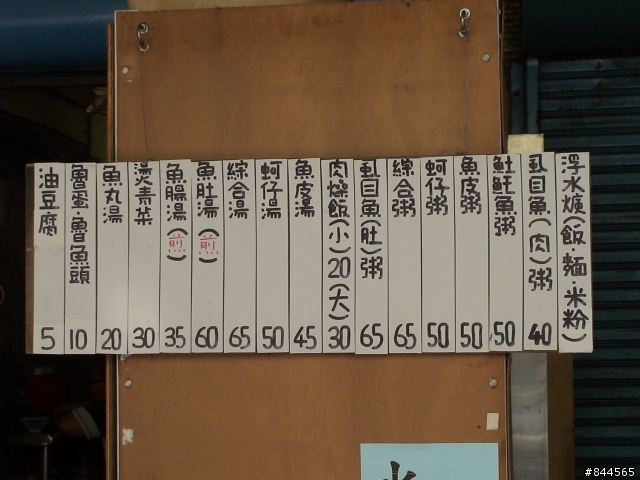 浮水焿(飯·麵·米粉)
虱目魚(肉)粥 40
魠魠魚粥 50
魚皮粥 50
蚵仔粥 50
綜合粥 65
虱目魚(肚)粥 65
肉燥飯(小)20(大) 30
魚皮湯 45
蚵仔湯 50
綜合湯 65
魚肚湯(煎) 60
魚腸湯(煎) 35
燙青菜 30
魚丸湯 20
魯蛋·魯魚頭 10
油豆腐 5
#844565